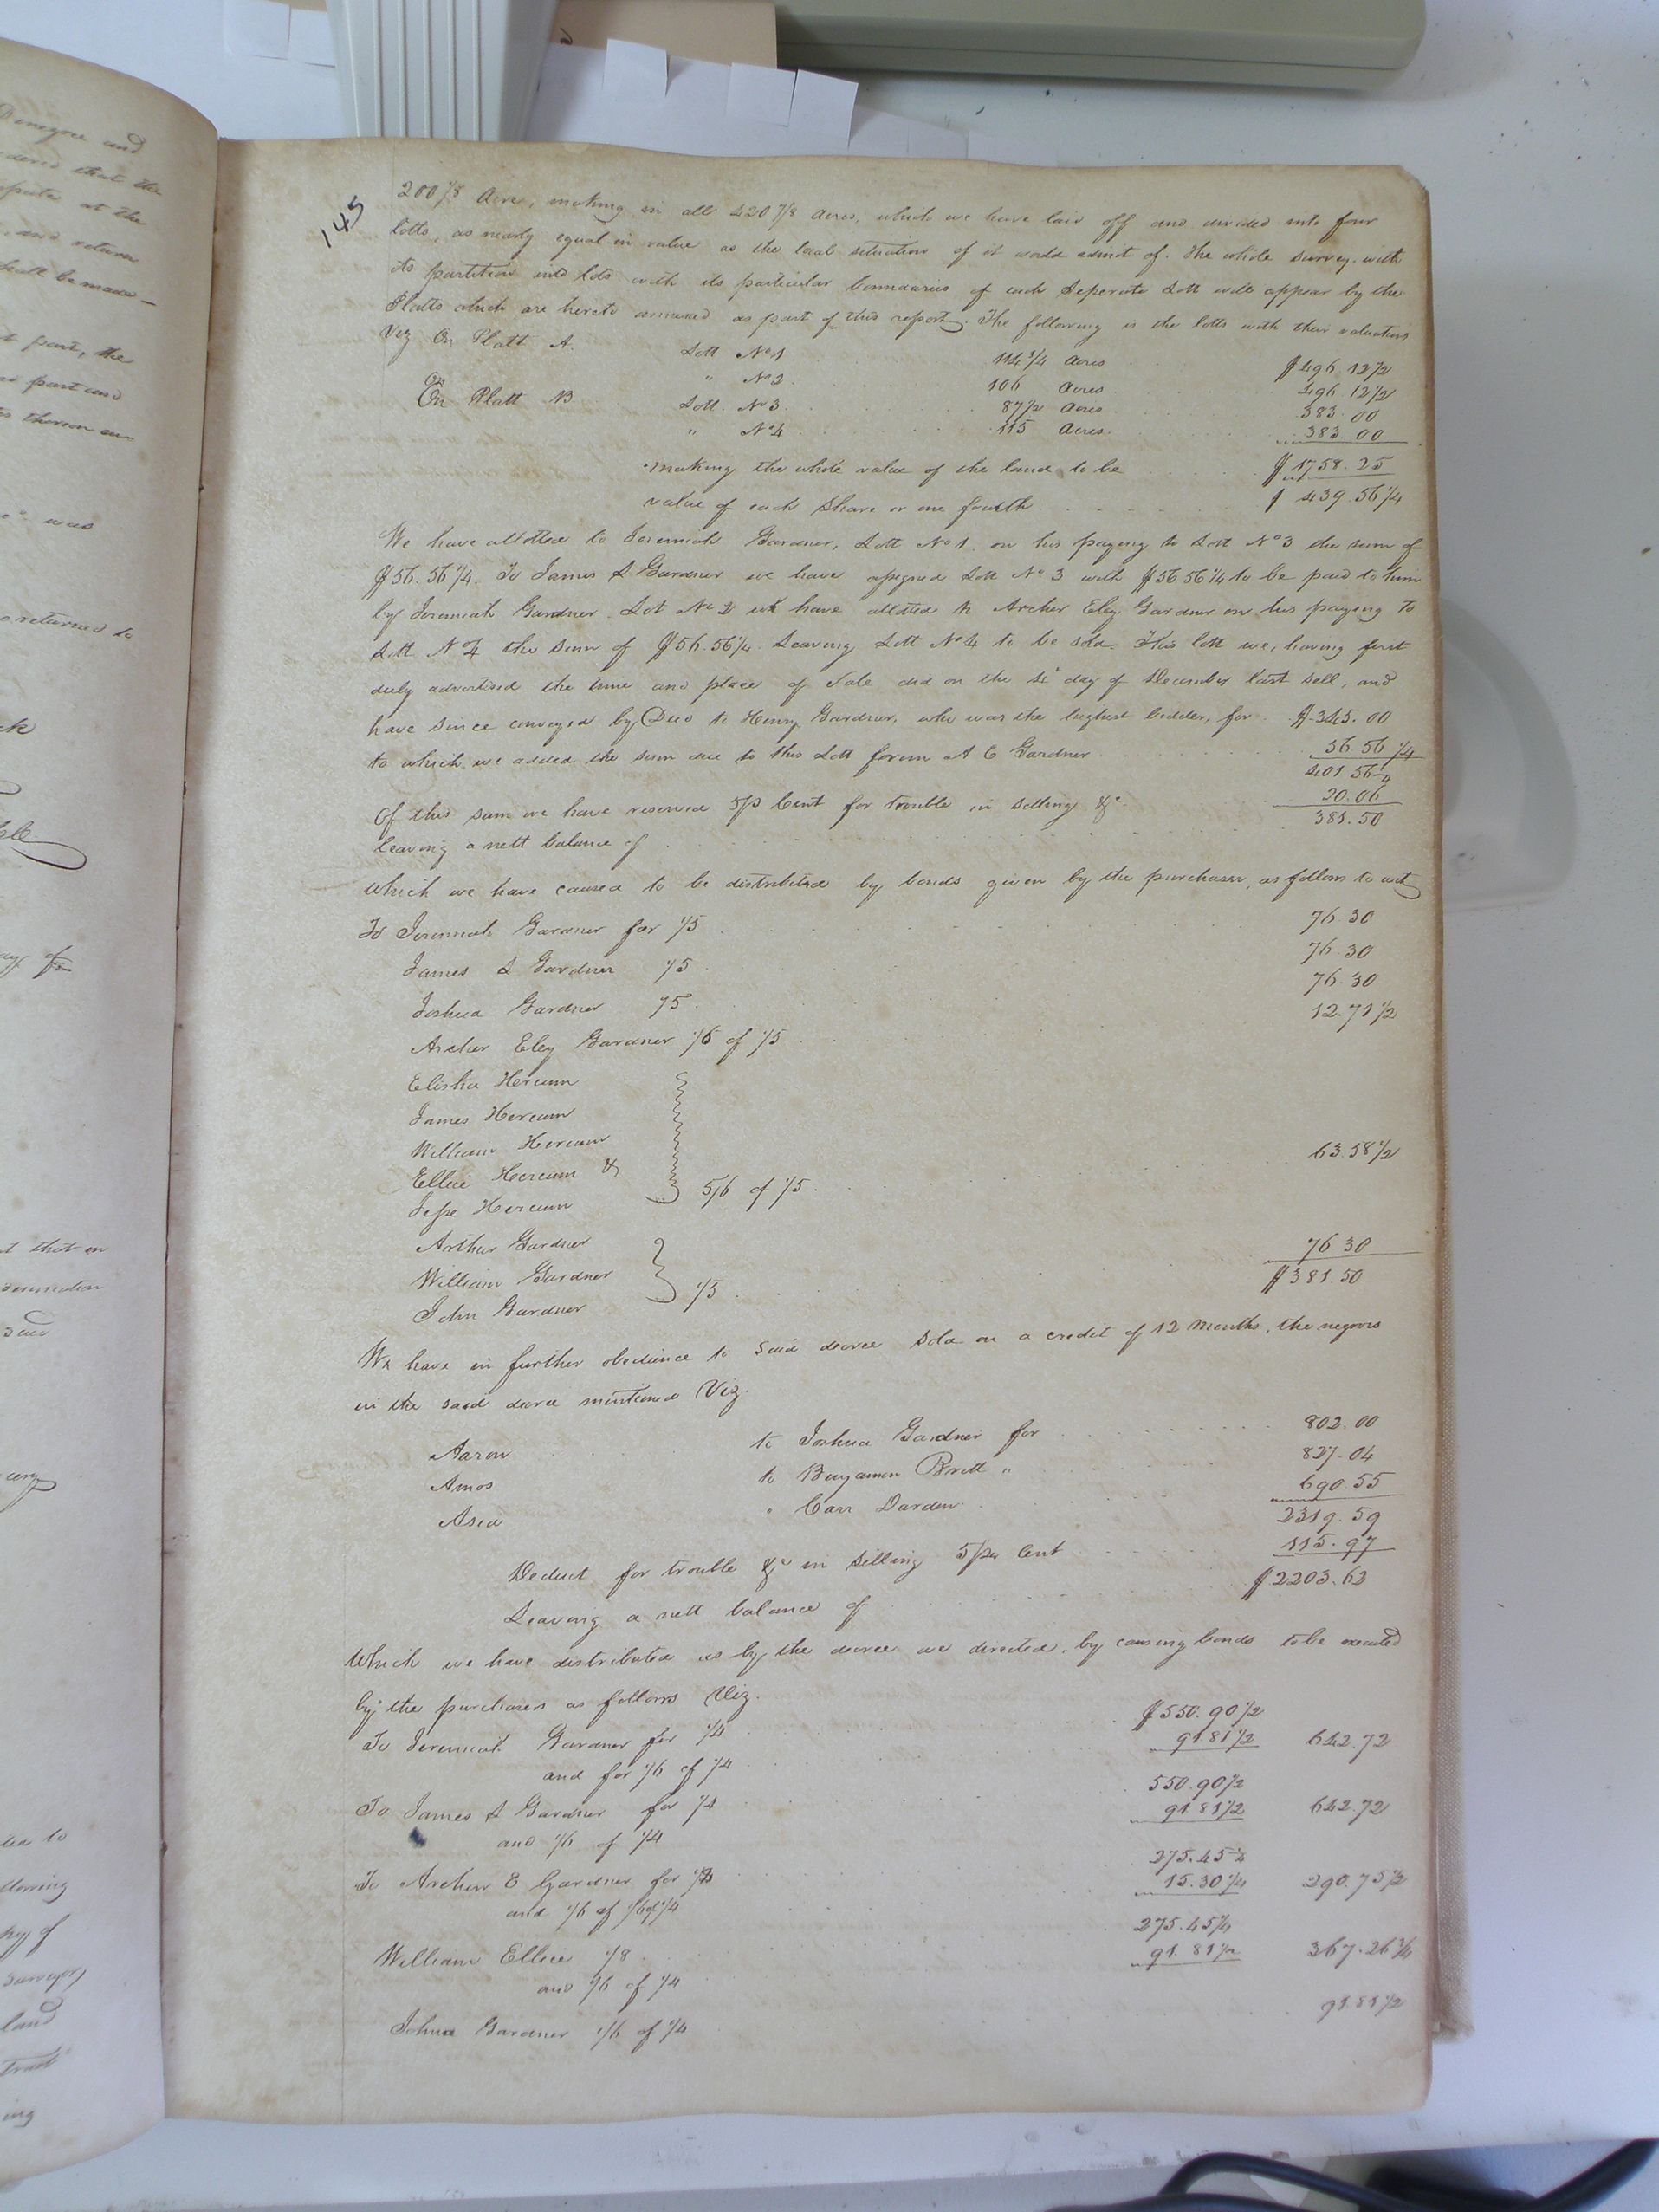 145
200 1/8 Acres, making in all 420 7/8 Acres, which we have laid off and divided into four
lotts, as nearly equal in value as the local situation of it would admit of. The whole survey, with
its partition into lots with its particular boundaries of each Seperate Lott will appear by the
Platts which are hereto annexed as part of this report. The following is the lotts with their valuations
Viz On Platt A. Lott No 1 114 3/4 Acres $496 12 1/2
" No 2. 106 Acres 496 12 1/2
On Platt B Lott. No 3. 87 1/2 Acres 383.00
" No 4 115 Acres. 383.00
making the whole value of the land to be $1758.25
value of each Share or one fourth $ 439.56 1/4
We have allotted to Jeremiah Gardner, Lott No 1 on his paying to Lott No 3 the sum of
$56.56 1/4. To James L Gardner we have assigned Lott No 3 with $56 56 1/4 to be paid to him
by Jeremiah Gardner Lot No 2 we have allotted to Archer Eley Gardner on his paying to
Lott No 4 the sum of $56.56 1/4. Leaving Lott No 4 to be sold. This lott we, having first
duly advertised the time and place of Sale did on the day of December last sell, and
have since conveyed by Deed to Henry Gardner, who was the highest bidder, for $345.00
to which we added the sum due to this Lott forum A E Gardner 56 56 1/4
401 56 1/4
Of this sum we have reserved 5 p Cent for trouble in selling &c 20.06
leaving a nett balance of 381.50
which we have caused to be distributed by bonds given by the purchaser, as follows to wit
To Jeremiah Gardner for 1/5 76.30
James L Gardner 1/5 76.30
Joshua Gardner 1/5. 76.30
Archer Eley Gardner 1/6 of 1/5 12.71 1/2
Elisha Hercum
James Hercum
William Hercum
Ellie Hercum &
Jesse Hercum 5/6 of 1/5. 63.58 1/2
Arthur Gardner
William Gardner
John Gardner 1/5 76 30
$381.50
We have in further obedience to said decree sold on a credit of 12 months, the negroes
in the said decree mentioned Viz.
Aaron to Joshua Gardner for 802.00
Amos to Benjamin Britt " 827.04
Asia " Carr Darden 690.55
2319.59
Deduct for trouble &c in selling 5 per Cent 115.97
Leaving a nett balance of $2203.62
Which we have distributed as by the decree we directed, by causing bonds to be executed
by the purchasers as follows Viz.
To Jeremiah Gardner for 1/4 $550.90 1/2
and for 1/6 of 1/4 91 81 1/2 642.72
To James L Gardner for 1/4 550.90 1/2
and 1/6 of 1/4 91.81 1/2 642.72
To Archer E Gardner for 1/8 275.45 1/4
and 1/6 of 1/6 of 1/4 15.30 1/4 290.75 1/2
William Ellice 1/8 275.45 1/4
and 1/6 of 1/4 91.81 1/2 367.26 3/4
Johua Gardner 1/6 of 1/4 91.81 1/2